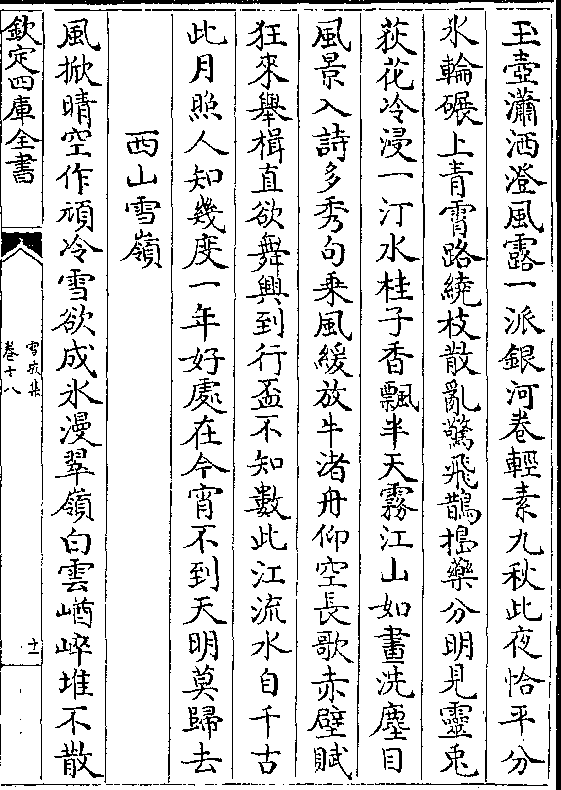 玉壺瀟洒澄風露一派銀河卷輕素九秋此夜恰平分
氷輪碾上青霄路繞枝散亂驚飛鵲搗藥分明見靈兎
荻花冷浸一汀水桂子香飄半天霧江山如畫洗塵目
風景入詩多秀句乗風緩放牛渚舟仰空長歌赤壁賦
狂來舉楫直欲舞興到行盃不知數此江流水自千古
此月照人知幾度一年好處在今宵不到天明莫歸去
西山雪嶺
風掀晴空作頑冷雪欲成氷漫翠嶺白雲崷崪堆不散
欽定四庫全書
雪磯集
卷十八
十一